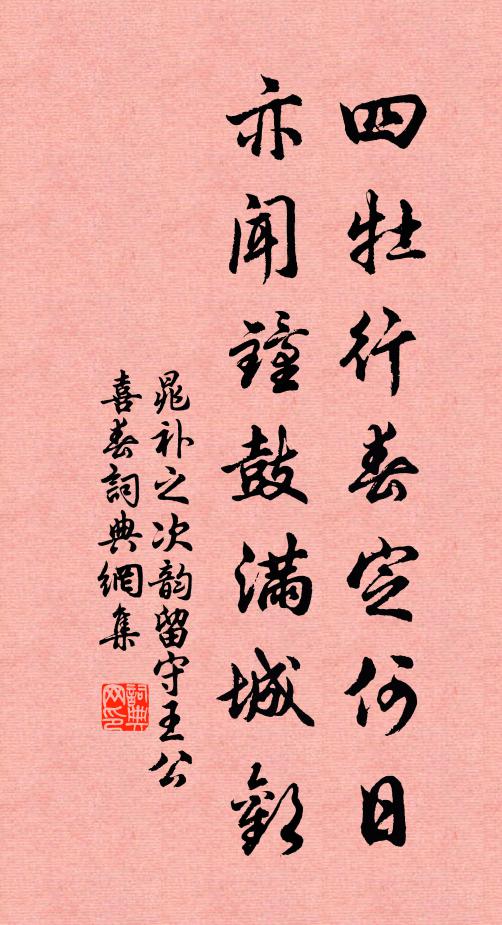 四牡行春定何日
亦闻鐘鼓满城歡
晁补之次韵留守王公
喜春詞典網集
詞典网印